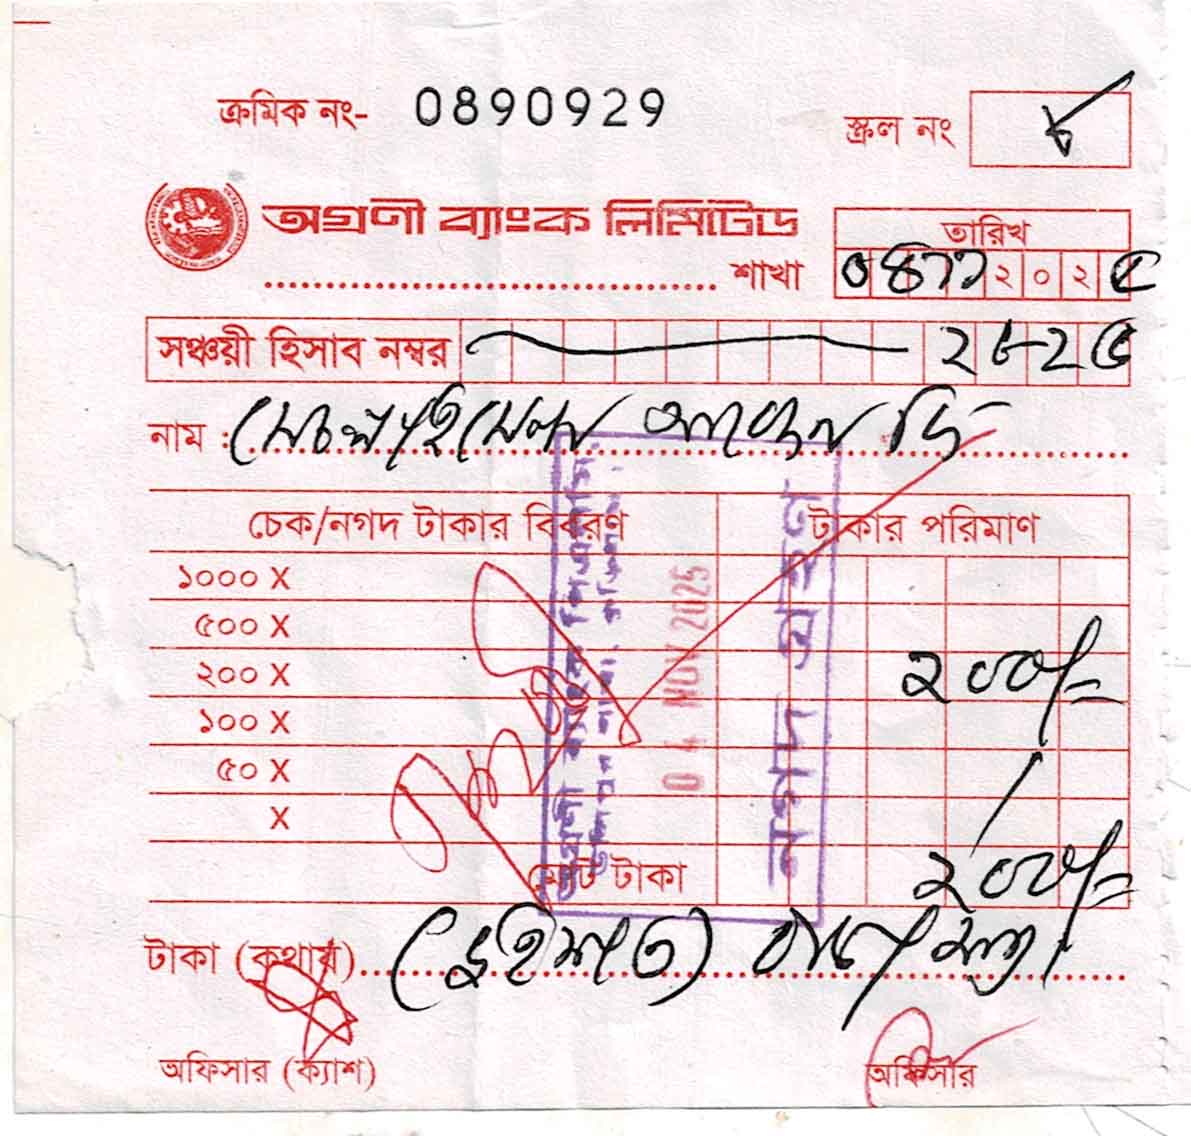 ক্রমিক নং- 0890929
স্ক্রল নং ৮
অগ্রণী ব্যাংক লিমিটেড
শাখা
তারিখ
০৪১১২০২৫
সঞ্চয়ী হিসাব নম্বর ২৮২৫
নাম :
চেক/নগদ টাকার বিবরণ টাকার পরিমাণ
১০০০ X
৫০০ X
২০০ X ২০০/=
১০০ X
৫০ X
X
মোট টাকা ২০০/=
টাকা (কথায়) (দুইশত) টাকা মাত্র।
অফিসার (ক্যাশ) অফিসার
অগ্রণী ব্যাংক পিএলসি.
04 NOV 2025
নগদ গ্রহণ